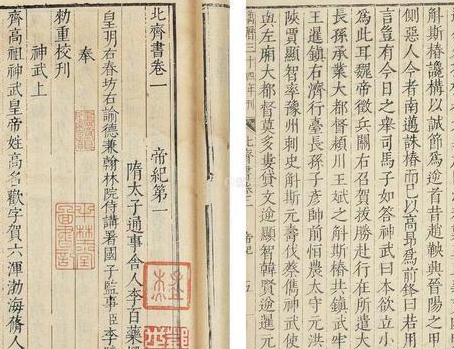 斛斯椿讒構以誠節為逆首昔趙鞅興晉陽之甲
側惡人今者南邁誅椿而已以高昂為前鋒曰若用
言豈有今日之舉司馬子如答神武曰本欲立小
為此耳魏帝徵兵關右召賀拔勝赴行在所遣大
長孫承業大都督潁川王斌之斛斯椿共鎮武牢
王暹鎮石濟行臺長孫子彥帥前恒農太守元洪
陝賈顯智率豫州刺史斛斯元壽伐蔡儁神武使
左廂大都督莫多婁貸文逆顯智韓賢逆暹元
萬曆三十四年刊 北齊書卷 帝紀 五
北齊書卷一 帝紀第一
隋太子通事舍人李百藥
皇明右春坊右諭德兼翰林院侍講署國子監事臣李
奉
勑重校刊
神武上
齊高祖神武皇帝姓高名歡字賀六渾渤海蓚人